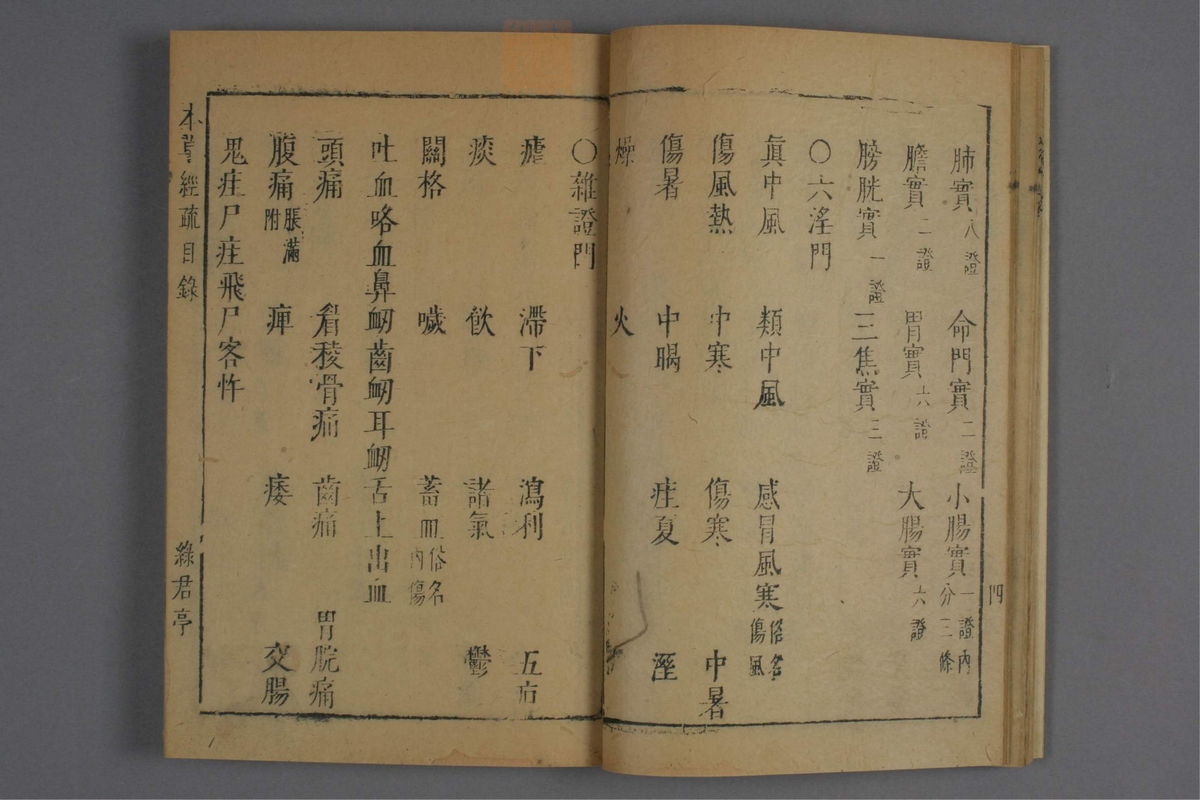 肺實八證 命門實二證 小腸實一證內分三條
膽實二證 胃實六證 大腸實六證
膀胱實一證 三焦實三證
〇六淫門
眞中風 類中風 感冒風寒俗名傷風
傷風熱 中寒 傷寒 中暑
傷暑 中暍 疰夏 溼
燥 火
四
〇雜證門
瘧 滯下 瀉利 五疸
痰 飲 諸氣 鬱
關格 噦 蓄血俗名內傷
吐血咯血鼻衂齒衂耳衂舌上出血
頭痛 眉稜骨痛 齒痛 胃脘痛
腹痛脹滿附 痺 痿 交腸
鬼疰尸疰飛尸客忤
本草經疏目錄 綠君亭